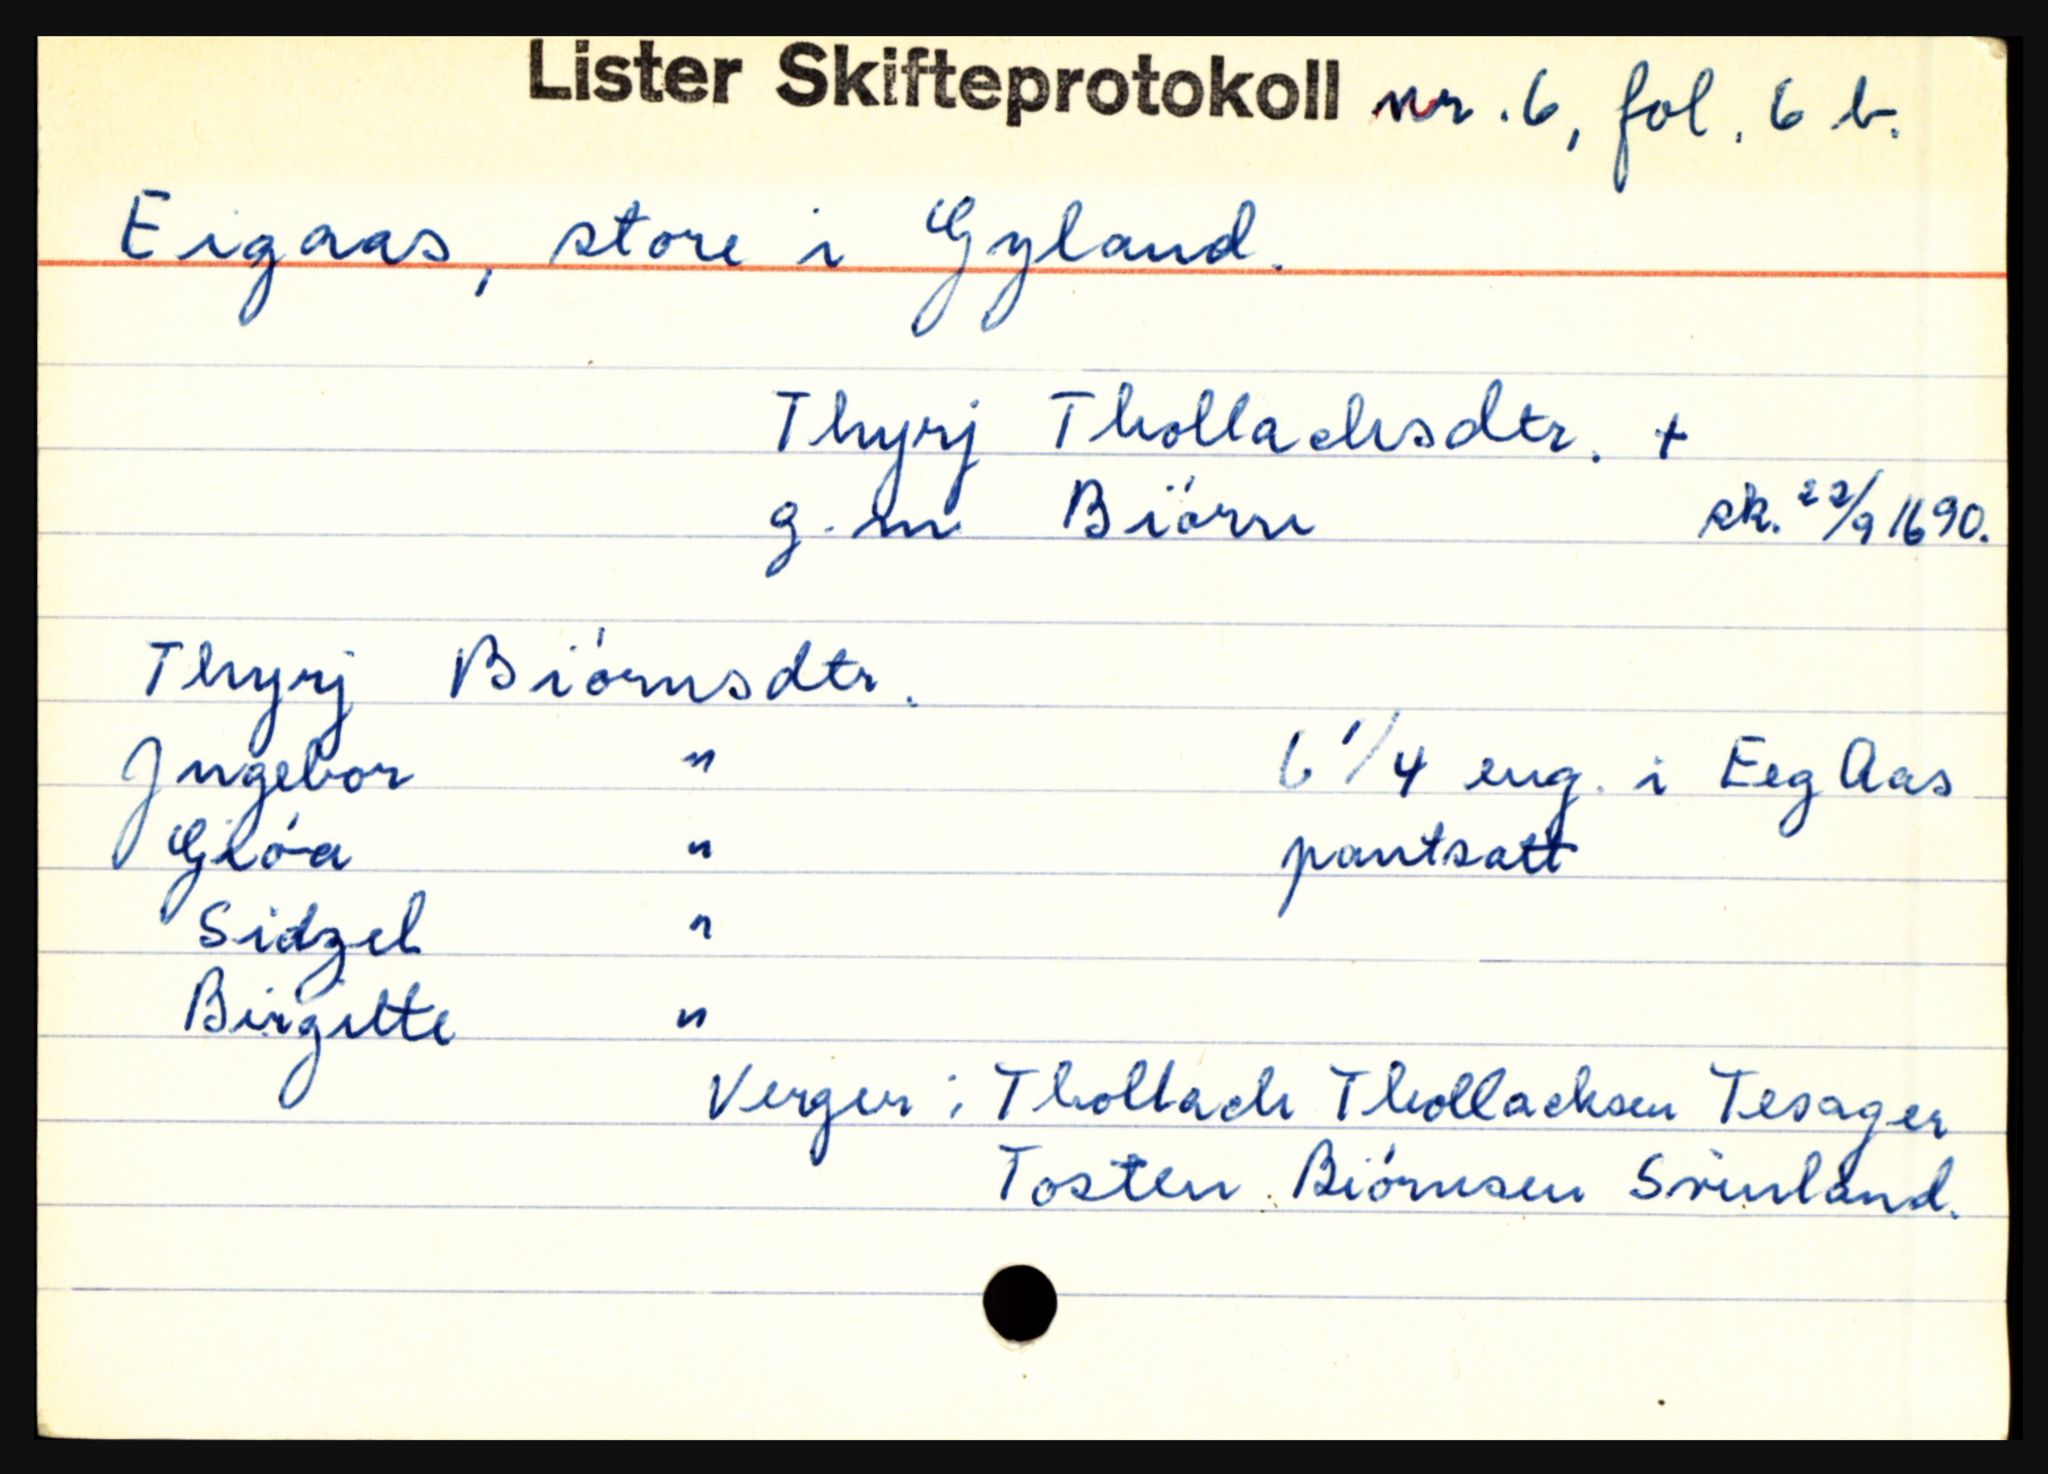 Lister Skifteprotokoll nr. 6, fol. 6 b.
Eigaas, store i Gyland.
Thyrj Thollachsdtr. +
g. m. Biörn sk. 22/9 1690.
Thyrj Biörnsdtr.
Jngebor "
6 1/4 eng. i Eeg Aas
Giöa "
pantsatt
Sidzel "
Birgitte "
Verger: Thollach Thollacksen Tesager
Tosten Biörnsen Svinland.